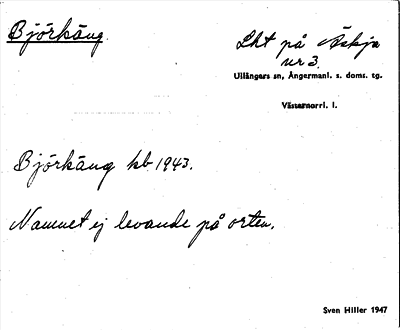 Björkäng.
Lht på Äskja
nr 3.
Ullångers sn, Ångermanl. s. doms. tg.
Västernorrl. l.
Björkäng kb 1943.
Namnet ej levande på orten.
Sven Hiller 1947